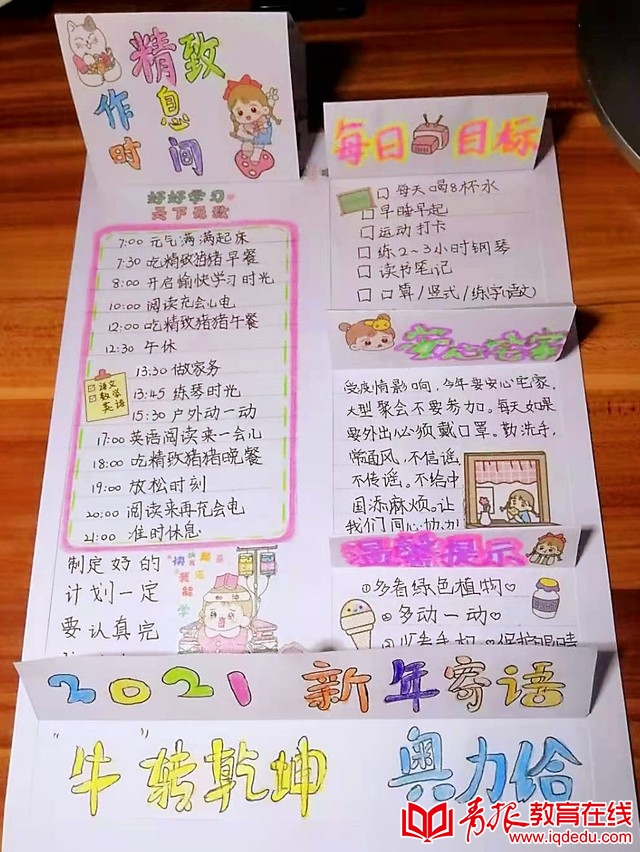 精致
作息
时间
好好学习
天天元气
7:00 元气满满起床
7:30 吃精致猪猪早餐
8:00 开启愉快学习时光
10:00 阅读充会儿电
12:00 吃精致猪猪午餐
12:30 午休
13:30 做家务
语文
数学
英语
13:45 练琴时光
15:30 户外动一动
17:00 英语阅读来一会儿
18:00 吃精致猪猪晚餐
19:00 放松时刻
20:00 阅读来再充会电
21:00 准时休息
制定好的
计划一定
要认真完
每日目标
每天喝8杯水
早睡早起
运动打卡
练2~3小时钢琴
读书笔记
口算/竖式/练字(语文)
安心宅家
受疫情影响,今年要安心宅家,
大型聚会不要参加。每天如果
要外出必须戴口罩。勤洗手,
常通风,不信谣,
不传谣。不给中
国添麻烦。让
我们同心协力
温馨提示
①多看绿色植物♡
②多动一动♡
少看手机 保护眼睛
2021 新年寄语
“牛”转乾坤 奥力给
青报教育在线
www.iqdedu.com